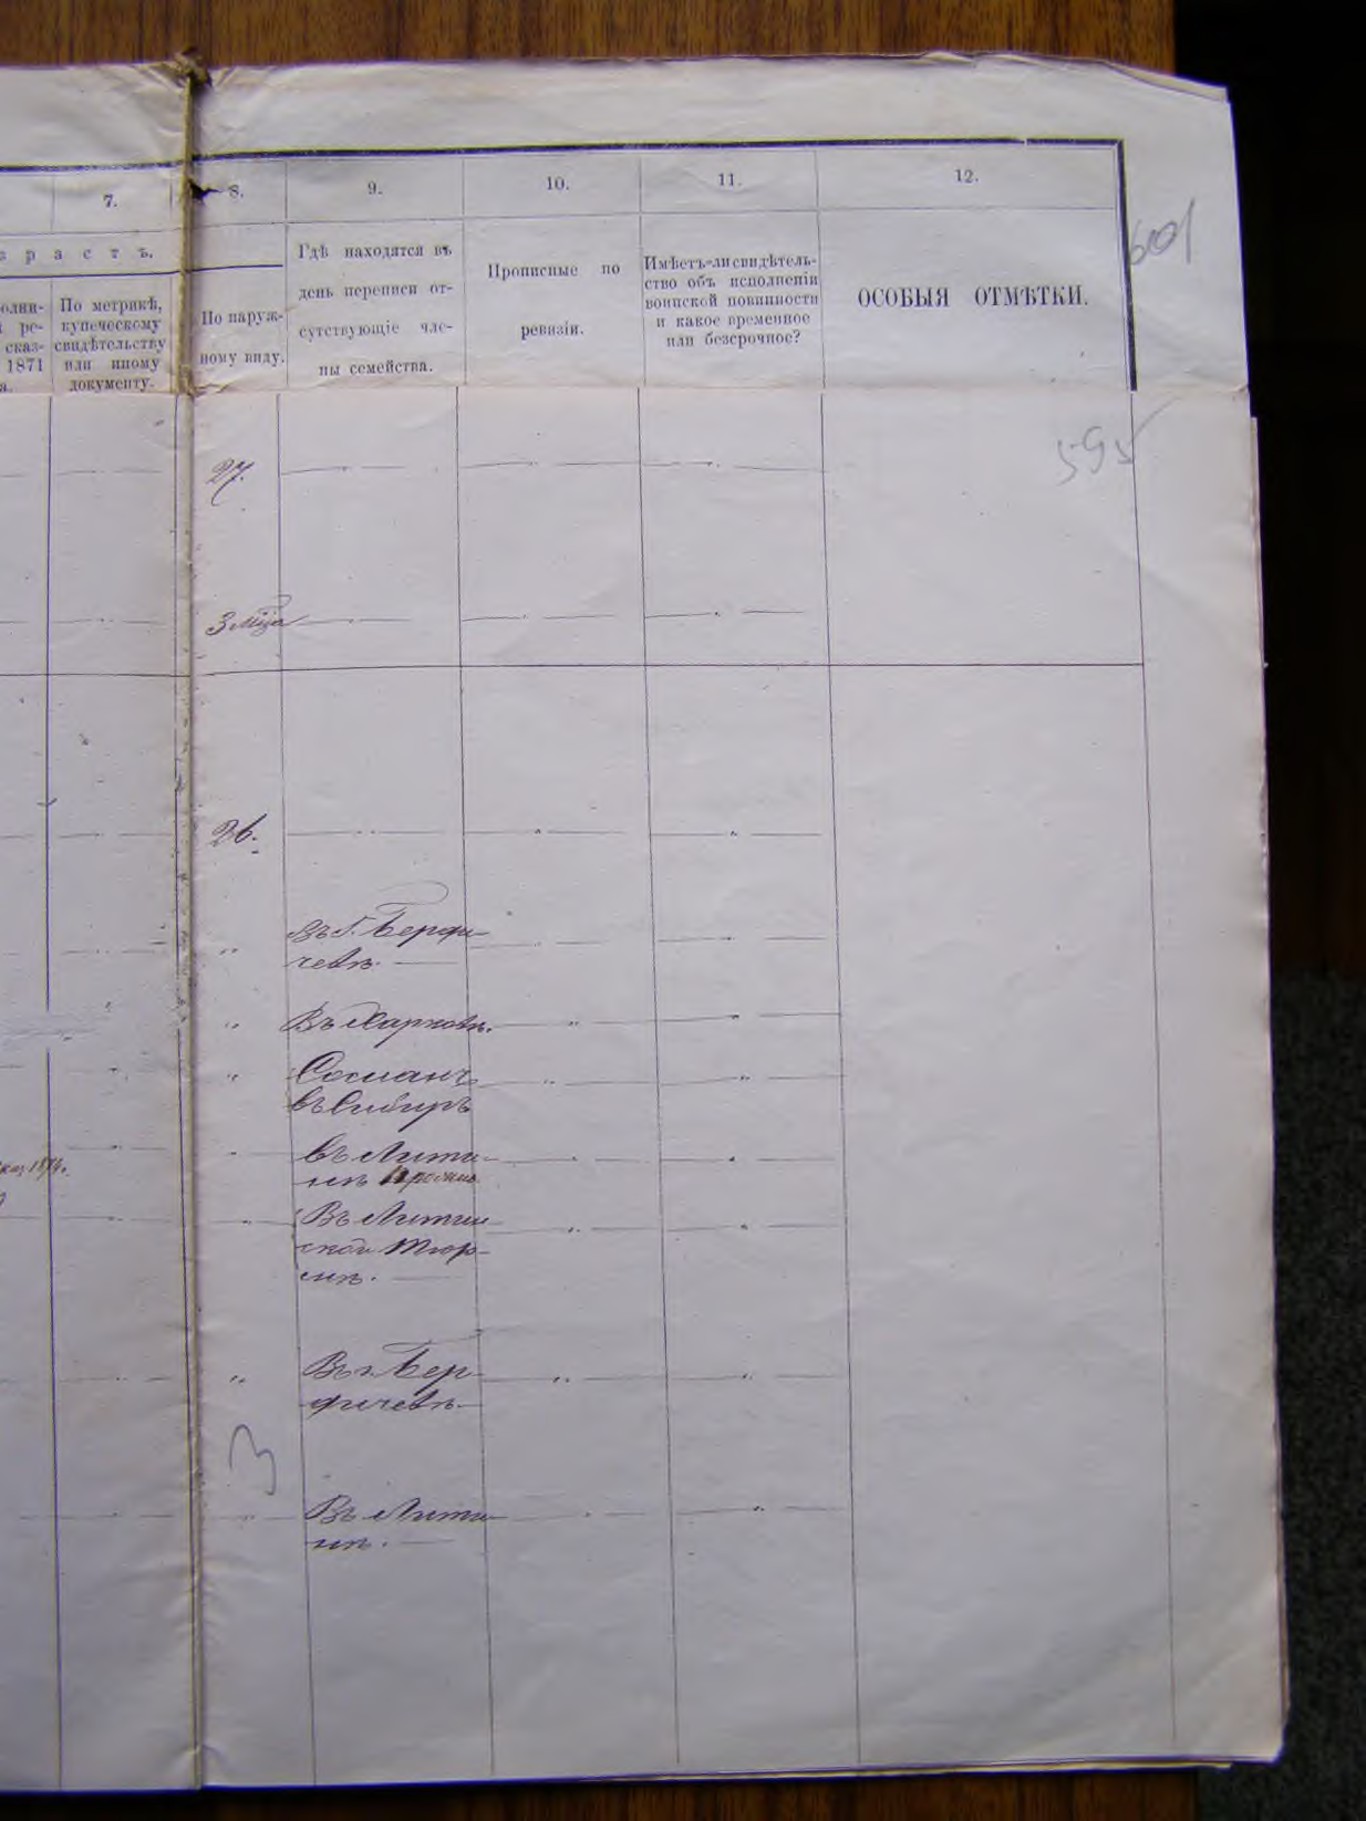 7.
8.
9.
10.
11.
12.
601
з р а с т ъ.
олни-
ре-
сказ-
1871
а.
По метрикѣ,
купеческому
свидѣтельству
или иному
документу.
По наруж-
ному виду.
Гдѣ находятся въ
день переписи от-
сутствующіе чле-
ны семейства.
Прописные по
ревизіи.
Имѣетъ-ли свидѣтель-
ство объ исполненіи
воинской повинности
и какое временное
или безсрочное?
ОСОБЫЯ ОТМѢТКИ.
595
27.
3 мѣс
26.
Въ г. Берди-
чевѣ.
Въ Харковѣ.
Сосланъ
въ Сибирь
въ Лити-
нѣ
каз. 1874.
Въ Литин
ской Тюр-
мѣ.
Въ г. Бер-
дичевѣ.
3
Въ Лити-
нѣ.